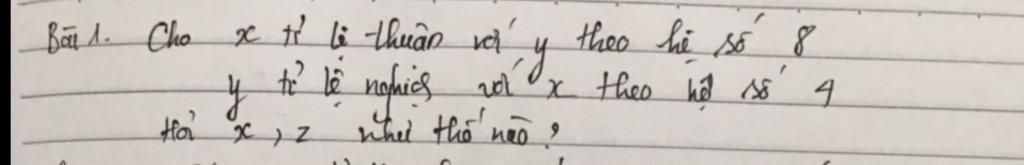 Bài 1. Cho x tỉ lệ thuận với y theo hệ số 8
y tỉ lệ nghịch với x theo hệ số 4
Hỏi x, z như thế nào?